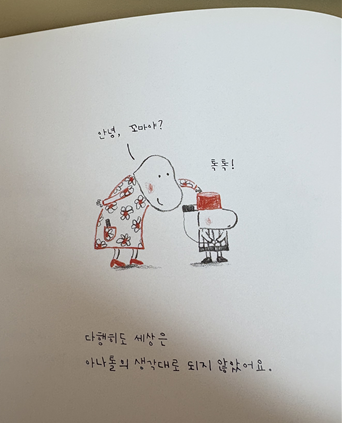 안녕, 꼬마야?
톡톡!
다행히도 세상은
아나톨의 생각대로 되지 않았어요.